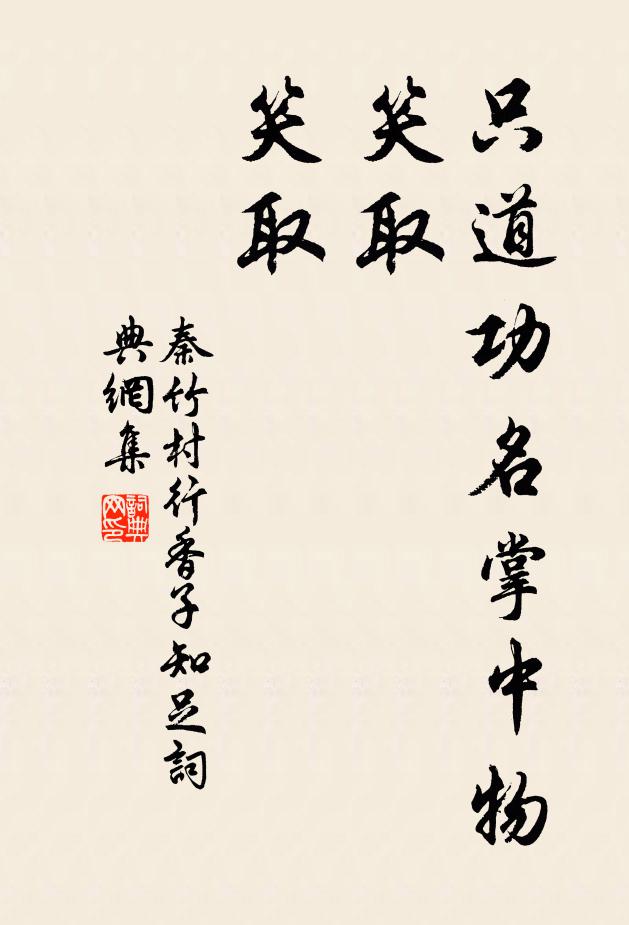 只道功名掌中物
笑取
笑取
秦竹村行香子知足詞
典網集
詞典
网印